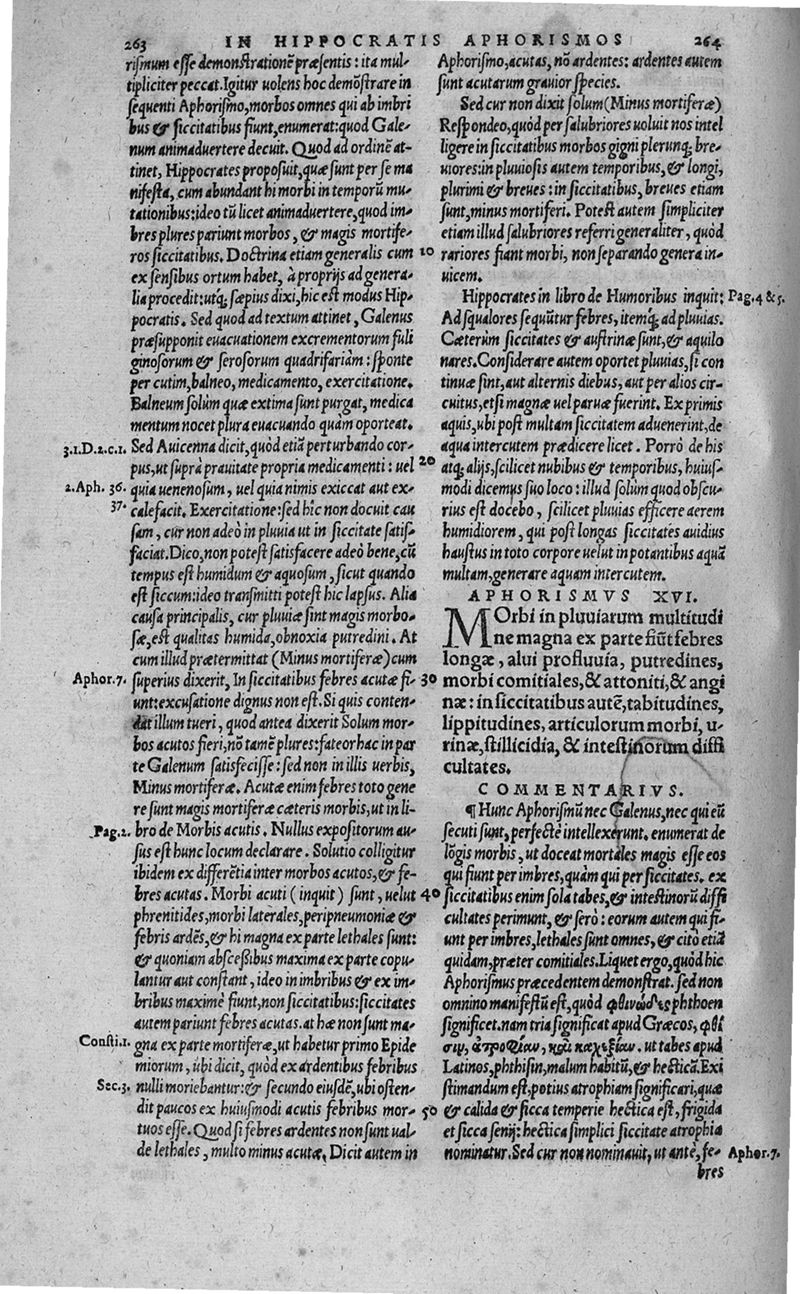 263 IN HIPPOCRATIS APHORISMOS 264
rismum esse demonstrationē præsentis : ita mul-
tipliciter peccat. Igitur uolens hoc demōstrare in
sequenti Aphorismo, morbos omnes qui ab imbri
bus & siccitatibus fiunt, enumerat: quod Gale-
num animaduertere decuit. Quod ad ordinē at-
tinet, Hippocrates proposuit, quæ sunt per se ma
nifesta, cum abundant hi morbi in temporū mu-
tationibus: ideo tū licet animaduertere, quod im-
bres plures pariunt morbos, & magis mortife-
ros siccitatibus. Doctrina etiam generalis cum
ex sensibus ortum habet, à proprijs ad genera-
lia procedit: utq; sæpius dixi, hic est modus Hip-
pocratis. Sed quod ad textum attinet, Galenus
præsupponit euacuationem excrementorum fuli
ginosorum & serosorum quadrifariàm : sponte
per cutim, balneo, medicamento, exercitatione.
Balneum solùm quæ extima sunt purgat, medica
mentum nocet plura euacuando quàm oporteat.
3.1.D.2.c.1. Sed Auicenna dicit, quòd etiā perturbando cor-
pus, ut suprà prauitate propria medicamenti : uel
2.Aph. 36. quia uenenosum, uel quia nimis exiccat aut ex-
37. calefacit. Exercitatione: sed hîc non docuit cau
sam, cur non adeò in pluuia ut in siccitate satis-
faciat. Dico, non potest satisfacere adeò bene, cū
tempus est humidum & aquosum, sicut quando
est siccum: ideo transmitti potest hic lapsus. Alia
causa principalis, cur pluuiæ sint magis morbo-
sæ, est qualitas humida, obnoxia putredini. At
cum illud prætermittat (Minus mortiferæ) cum
Aphor. 7. superius dixerit, In siccitatibus febres acutæ fi-
unt: excusatione dignus non est. Si quis conten-
dat illum tueri, quod antea dixerit Solum mor-
bos acutos fieri, nō tamē plures: fateor hac in par
te Galenum satisfecisse : sed non in illis uerbis,
Minus mortiferæ. Acutæ enim febres toto gene
re sunt magis mortiferæ cæteris morbis, ut in li-
Pag. 2. bro de Morbis acutis. Nullus expositorum au-
sus est hunc locum declarare. Solutio colligitur
ibidem ex differētia inter morbos acutos, & fe-
bres acutas. Morbi acuti (inquit) sunt, uelut
phrenitides, morbi laterales, peripneumoniæ &
febris ardēs, & hi magna ex parte lethales sunt:
& quoniam abscessibus maxima ex parte copu-
lantur aut constant, ideo in imbribus & ex im-
bribus maximè fiunt, non siccitatibus: siccitates
autem pariunt febres acutas. at hæ non sunt ma-
Consti. 1. gna ex parte mortiferæ, ut habetur primo Epide
miorum, ubi dicit, quòd ex ardentibus febribus
Sec. 3. nulli moriebantur: & secundo eiusdē, ubi osten-
dit paucos ex huiusmodi acutis febribus mor-
tuos esse. Quod si febres ardentes non sunt ual-
de lethales, multo minus acutæ. Dicit autem in
Aphorismo, acutas, nō ardentes: ardentes autem
sunt acutarum grauior species.
Sed cur non dixit solum (Minus mortiferæ)
Respondeo, quòd per salubriores uoluit nos intel
ligere in siccitatibus morbos gigni plerunq; bre-
uiores: in pluuiosis autem temporibus, & longi,
plurimi & breues : in siccitatibus, breues etiam
sunt, minus mortiferi. Potest autem simpliciter
etiam illud salubriores referri generaliter, quòd
10 rariores fiant morbi, non separando genera in-
uicem.
Hippocrates in libro de Humoribus inquit: Pag. 4 & 5.
Ad squalores sequūtur febres, itemq; ad pluuias.
Cæterùm siccitates & austrinæ sunt, & aquilo
nares. Considerare autem oportet pluuias, si con
tinuæ sint, aut alternis diebus, aut per alios cir-
cuitus, et si magnæ uel paruæ fuerint. Ex primis
aquis, ubi post multam siccitatem aduenerint, de
aqua intercutem prædicere licet. Porrò de his
20 atq; alijs, scilicet nubibus & temporibus, huius-
modi dicemus suo loco : illud solùm quod obscu-
rius est docebo, scilicet pluuias efficere aerem
humidiorem, qui post longas siccitates auidius
haustus in toto corpore uelut in potantibus aquā
multam, generare aquam intercutem.
APHORISMVS XVI.
MOrbi in pluuiarum multitudi
ne magna ex parte fiūt febres
longæ, alui profluuia, putredines,
30 morbi comitiales, & attoniti, & angi
næ: in siccitatibus autē, tabitudines,
lippitudines, articulorum morbi, u-
rinæ, stillicidia, & intestinorum diffi
cultates.
COMMENTARIVS.
¶ Hunc Aphorismū nec Galenus, nec qui eū
secuti sunt, perfectè intellexerunt. enumerat de
lōgis morbis, ut doceat mortales magis esse eos
qui fiunt per imbres, quàm qui per siccitates. ex
40 siccitatibus enim sola tabes, & intestinorū diffi
cultates perimunt, & serò : eorum autem qui fi-
unt per imbres, lethales sunt omnes, & citò etiā
quidam, præter comitiales. Liquet ergo, quòd hic
Aphorismus præcedentem demonstrat. sed non
omnino manifestū est, quòd φθινώδες phthoen
significet. nam tria significat apud Græcos, φθί
σιν, ἀτροφίαν, καὶ καχεξίαν. ut tabes apud
Latinos, phthisin, malum habitū, & hecticā. Exi
stimandum est, potius atrophiam significari, quæ
50 & calida & sicca temperie hectica est, frigida
et sicca senij: hectica simplici siccitate atrophia
nominatur. Sed cur non nominauit, ut antè, fe- Aphor. 7.
bres